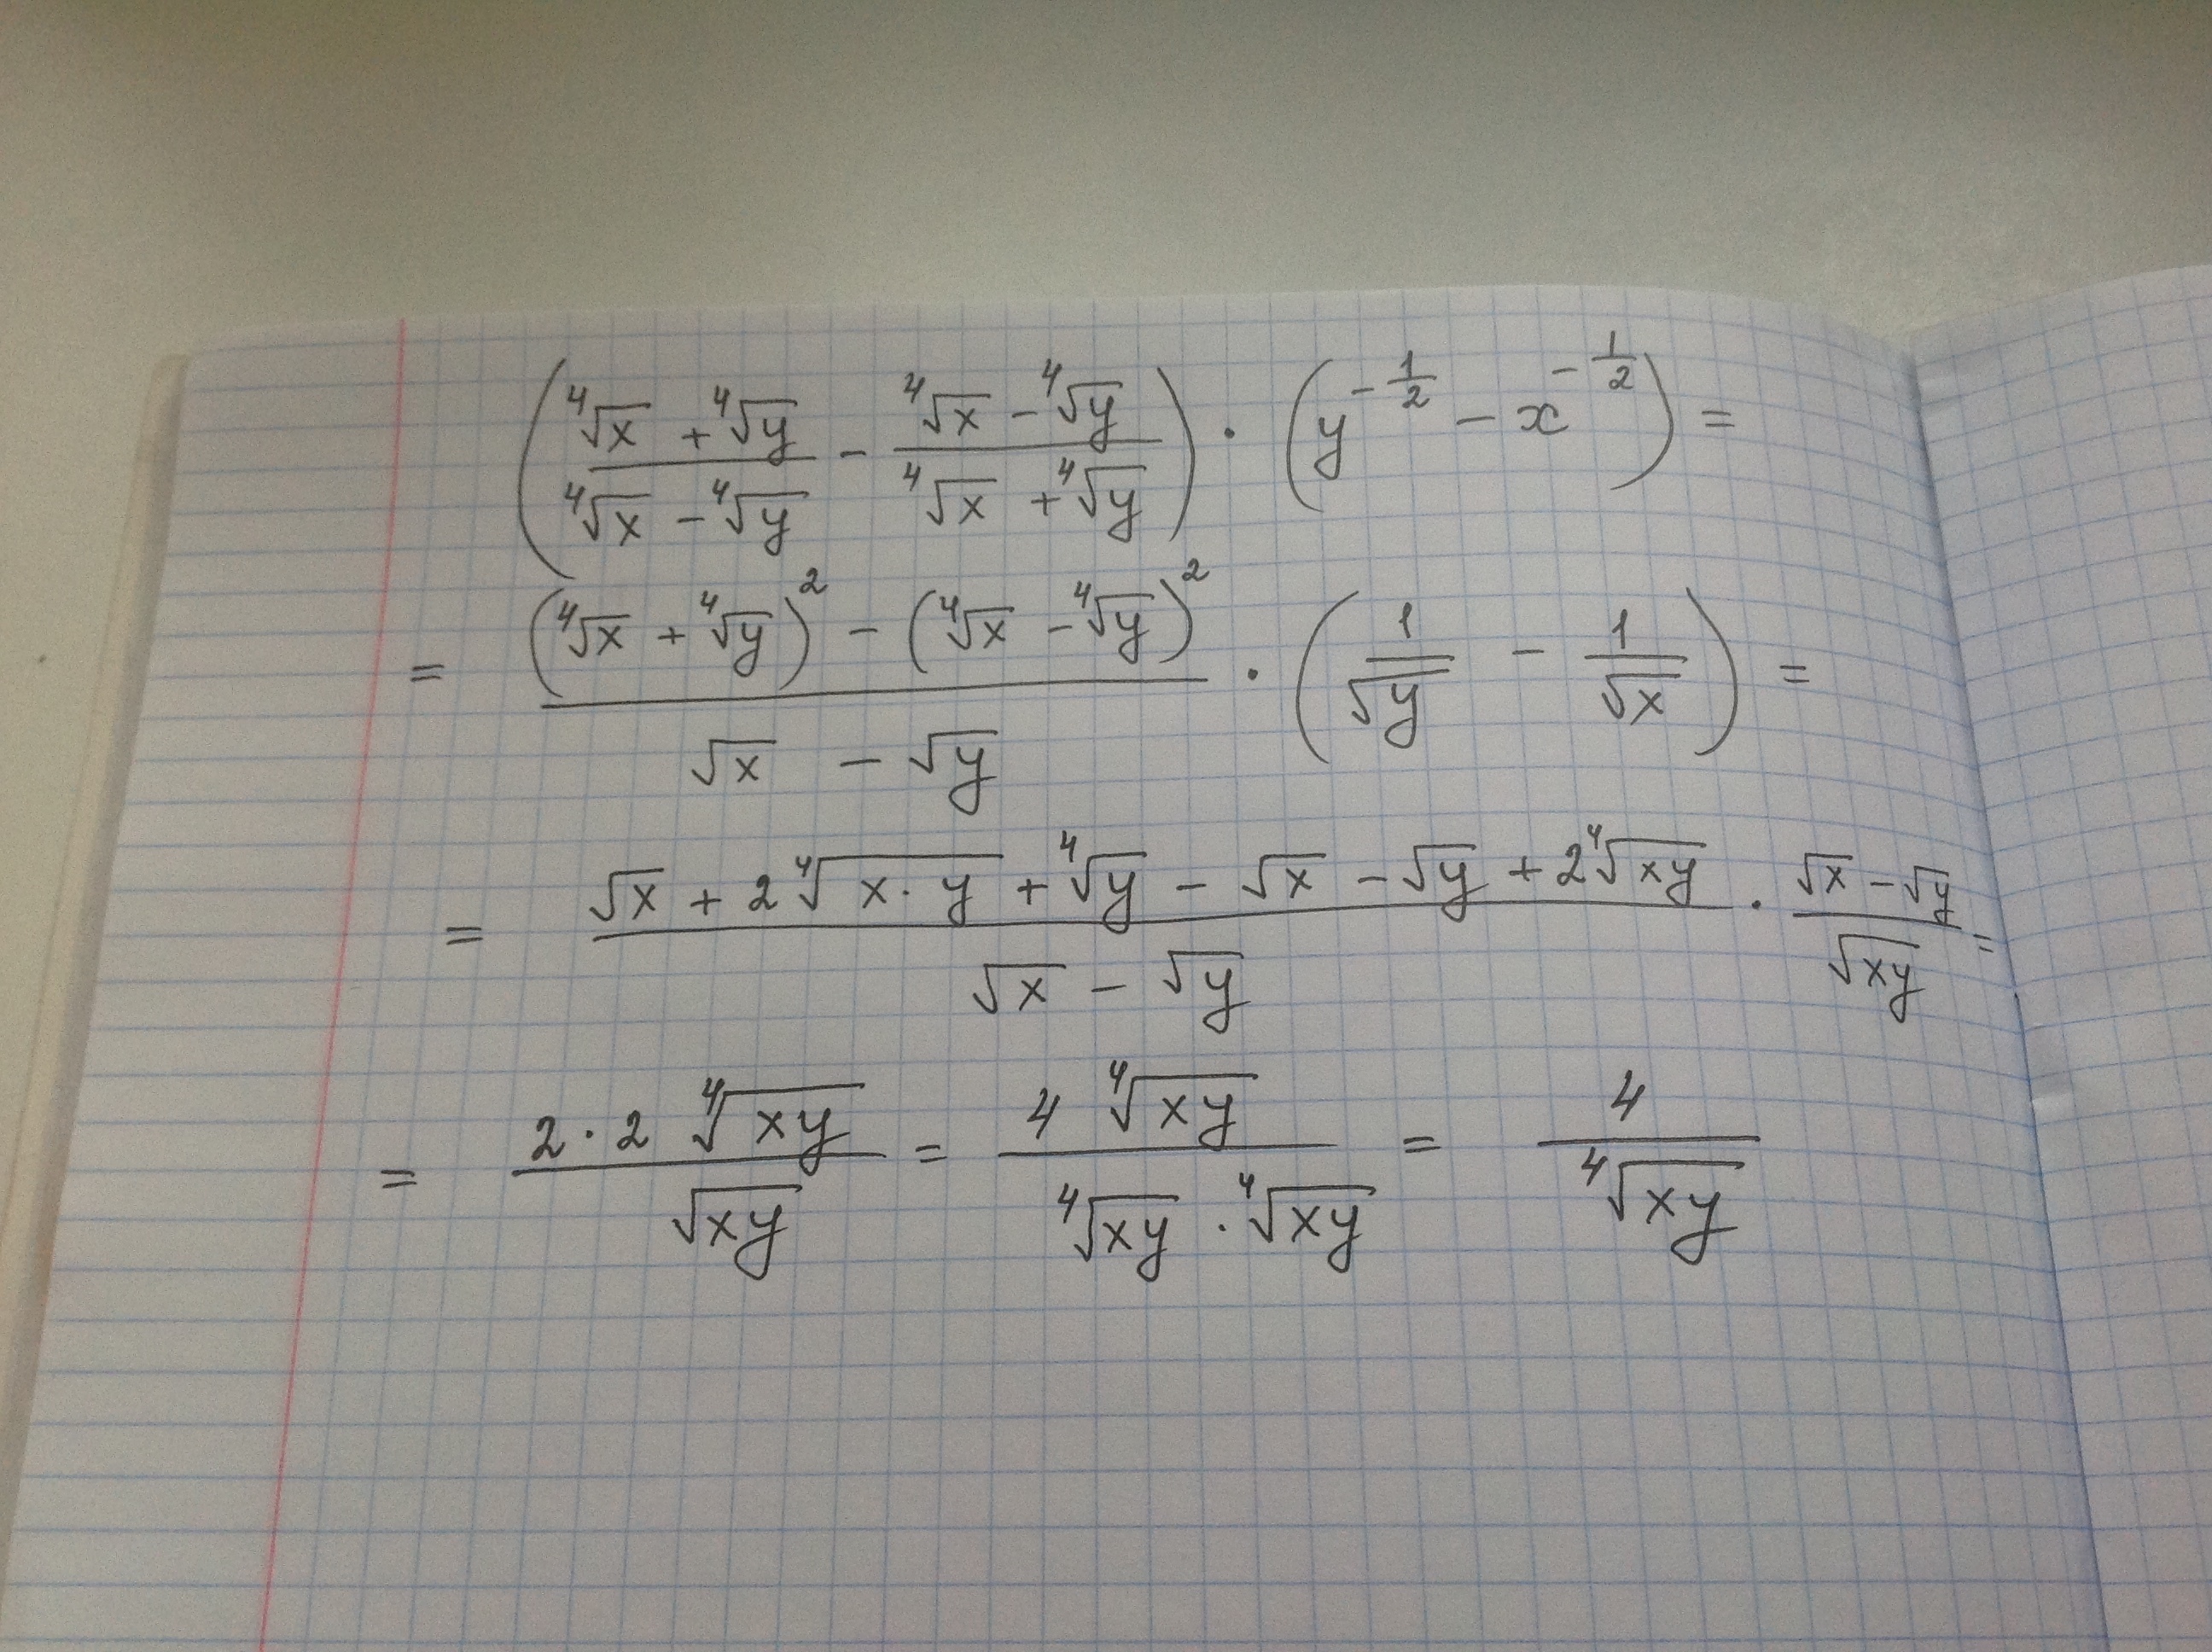 (⁴√x + ⁴√y / ⁴√x − ⁴√y − ⁴√x − ⁴√y / ⁴√x + ⁴√y) · (y^(−1/2) − x^(−1/2)) =
= (⁴√x + ⁴√y)² − (⁴√x − ⁴√y)² / √x − √y · (1/√y − 1/√x) =
= √x + 2⁴√(x·y) + ⁴√y − √x − √y + 2⁴√(xy) / √x − √y · √x − √y / √(xy) =
= 2·2 ⁴√(xy) / √(xy) = 4 ⁴√(xy) / ⁴√(xy) · ⁴√(xy) = 4 / ⁴√(xy)